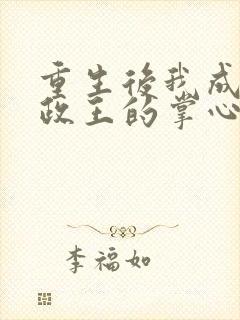 重生後我成
政王的掌心
李福如